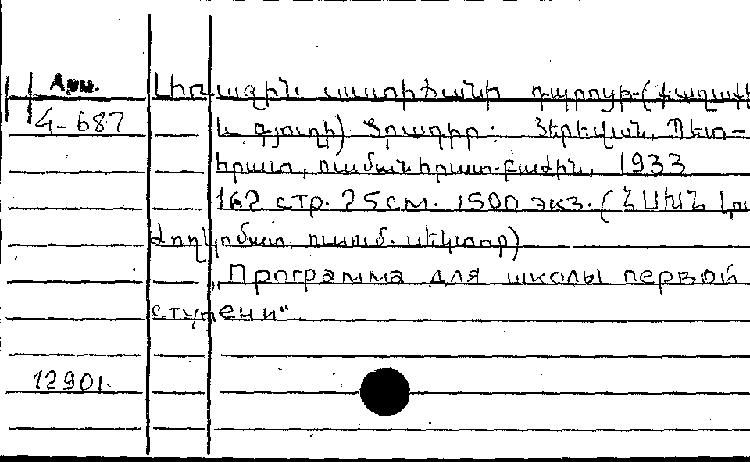 Арм.
4-687
աստիճանի դպրոց (քաղաքի
և գյուղի) Ծրագիր: Յերեվան, Պետ-
հրատ, ուսմանկհրատ. բաժին, 1933
162 стр. 25 см. 1500 экз. (ՀՍԽՀ Լու
ժողկոմատ, ուսում. սեկտոր)
„Программа для школы первой
ступени“.
12901.